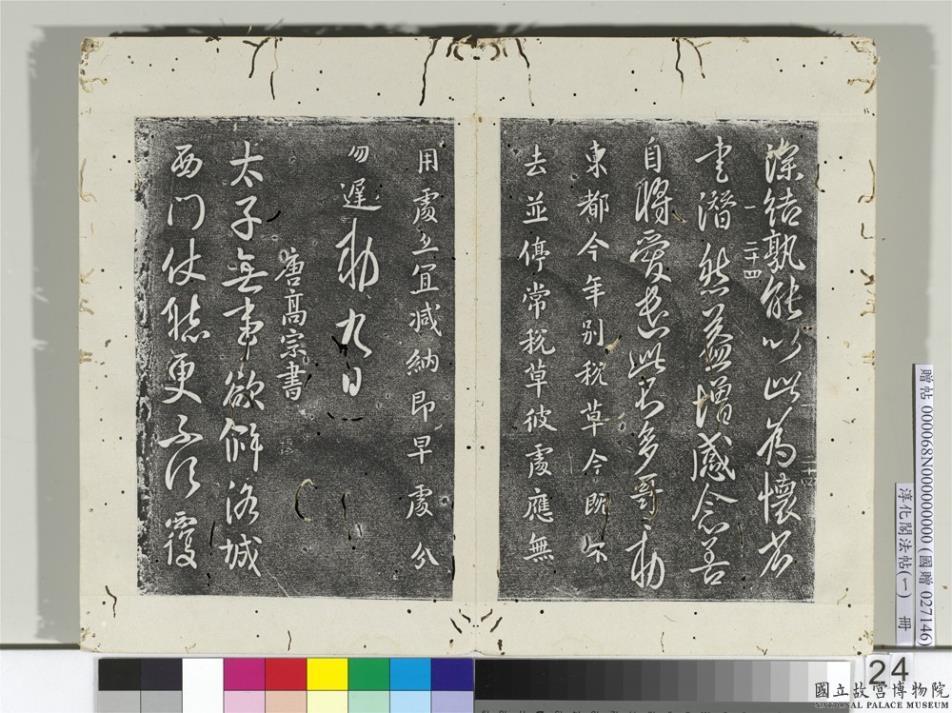 深結孰能以此為懷省
一 二十四
書潛然益增感念善
自將愛遣此不多哥〻敕
東都今年別稅草令既不
去並停常稅草彼處應無
用處並宜減納即早處分
勿遲敕 九日
唐高宗書
太子無事欲解洛城
西門仗聽更不須覆
贈帖 000068N000000000 (國贈 027146)
淳化閣法帖(一) 冊
24
國立故宮博物院
NATIONAL PALACE MUSEUM